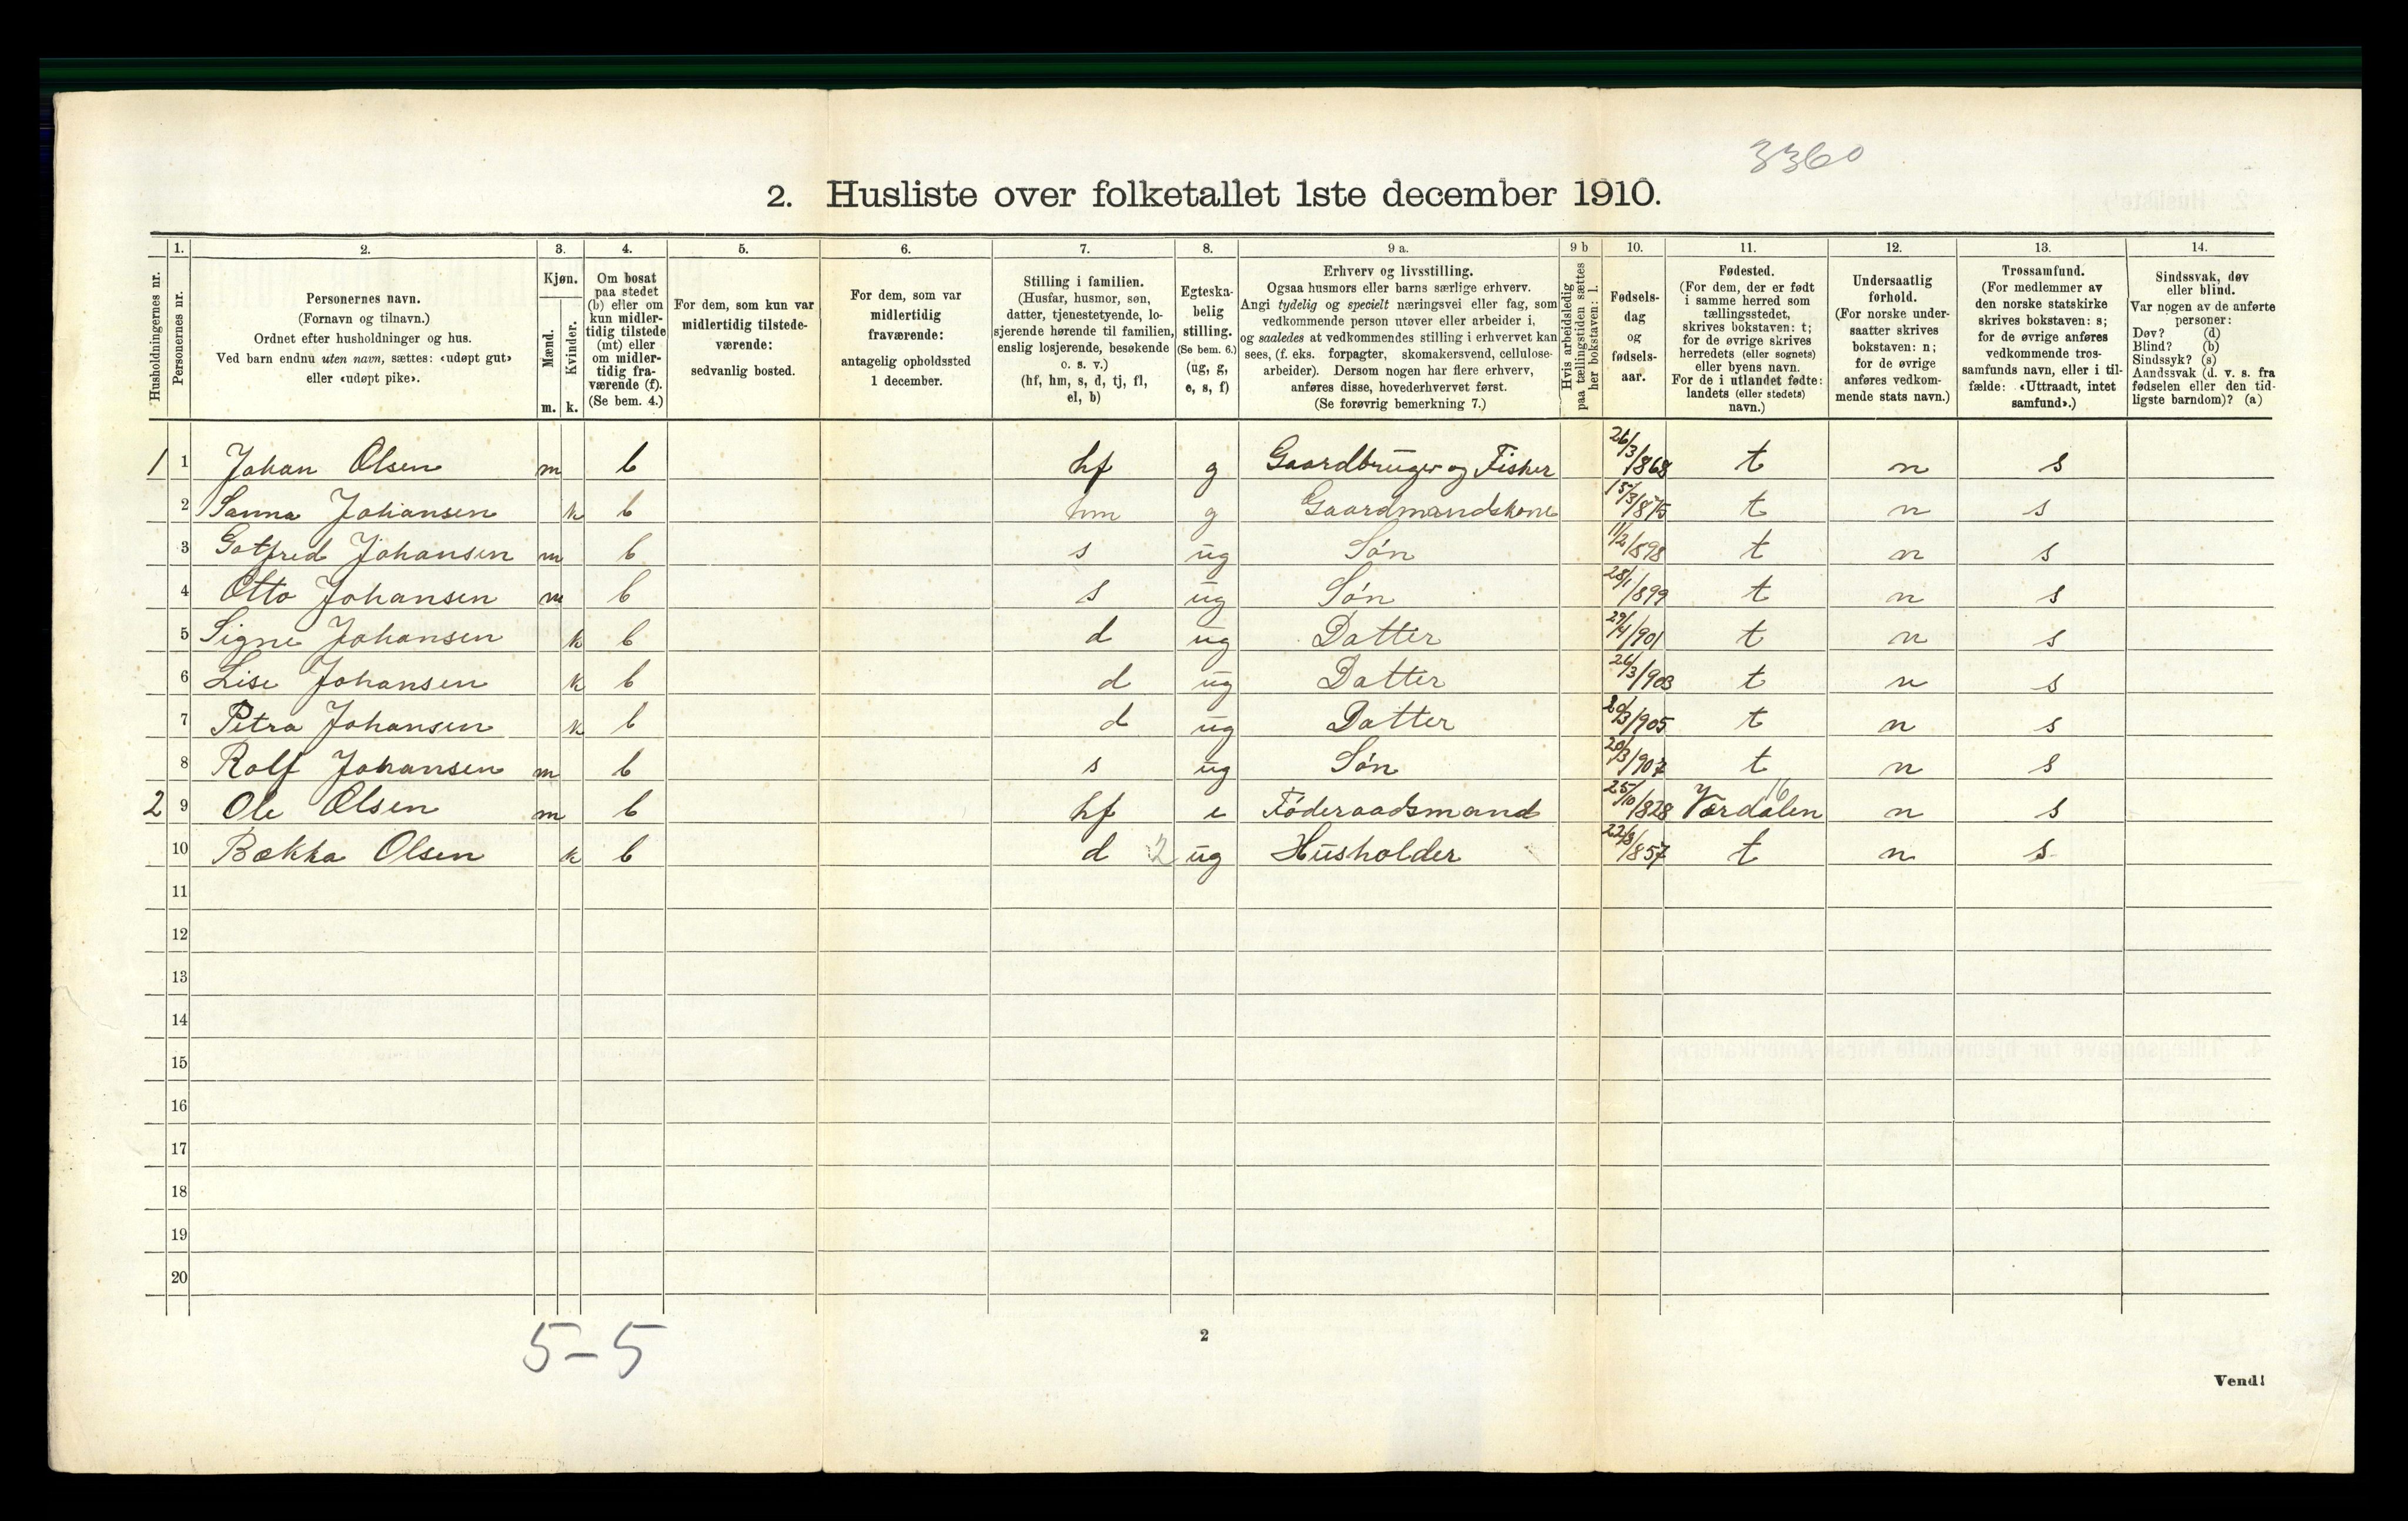 3360
2. Husliste over folketallet 1ste december 1910.
Husholdningernes nr.
1. Personernes nr.
2. Personernes navn. (Fornavn og tilnavn.) Ordnet efter husholdninger og hus. Ved barn endnu uten navn, sættes: «udøpt gut» eller «udøpt pike».
3. Kjøn. Mænd. m. Kvinder. k.
4. Om bosat paa stedet (b) eller om kun midler-tidig tilstede (mt) eller om midler-tidig fra-værende (f). (Se bem. 4.)
5. For dem, som kun var midlertidig tilstede-værende: sedvanlig bosted.
6. For dem, som var midlertidig fraværende: antagelig opholdssted 1 december.
7. Stilling i familien. (Husfar, husmor, søn, datter, tjenestetyende, lo-sjerende hørende til familien, enslig losjerende, besøkende o. s. v.) (hf, hm, s, d, tj, fl, el, b)
8. Egteska-belig stilling. (Se bem. 6.) (ug, g, e, s, f)
9 a. Erhverv og livsstilling. Ogsaa husmors eller barns særlige erhverv. Angi tydelig og specielt næringsvei eller fag, som vedkommende person utøver eller arbeider i, og saaledes at vedkommendes stilling i erhvervet kan sees, (f. eks. forpagter, skomakersvend, cellulose-arbeider). Dersom nogen har flere erhverv, anføres disse, hovederhvervet først. (Se forøvrig bemerkning 7.)
9 b Hvis arbeidsledig paa tællingstiden sættes her bokstaven: l.
10. Fødsels-dag og fødsels-aar.
11. Fødested. (For dem, der er født i samme herred som tællingsstedet, skrives bokstaven: t; for de øvrige skrives herredets (eller sognets) eller byens navn. For de i utlandet fødte: landets (eller stedets) navn.)
12. Undersaatlig forhold. (For norske under-saatter skrives bokstaven: n; for de øvrige anføres vedkom-mende stats navn.)
13. Trossamfund. (For medlemmer av den norske statskirke skrives bokstaven: s; for de øvrige anføres vedkommende tros-samfunds navn, eller i til-fælde: «Uttraadt, intet samfund».)
14. Sindssvak, døv eller blind. Var nogen av de anførte personer: Døv? (d) Blind? (b) Sindssyk? (s) Aandssvak (d. v. s. fra fødselen eller den tid-ligste barndom)? (a)
1 1 Johan Olsen m b hf g Gaardbruger og Fisker 26/3/868 t n s
2 Sanna Johansen k b hm g Gaardmandskone 15/3/875 t n s
3 Gotfred Johansen m b s ug Søn 11/2/898 t n s
4 Otto Johansen m b s ug Søn 28/1/899 t n s
5 Signe Johansen k b d ug Datter 29/4/901 t n s
6 Lise Johansen k b d ug Datter 26/3/903 t n s
7 Petra Johansen k b d ug Datter 20/3/905 t n s
8 Rolf Johansen m b s ug Søn 20/3/907 t n s
2 9 Ole Olsen m b hf e Føderaadsmand 25/10/828 Værdalen 16 n s
10 Bækka Olsen k b d 2 ug Husholder 22/3/857 t n s
11
12
13
14
15
16
17
18
19
20
5-5
2
Vend!